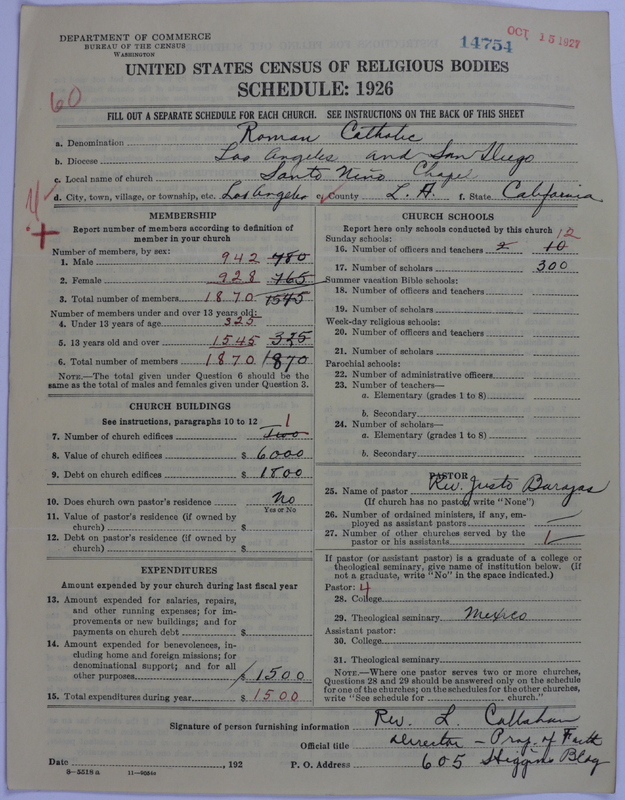 DEPARTMENT OF COMMERCE
BUREAU OF THE CENSUS
WASHINGTON
14754
OCT 15 1927
UNITED STATES CENSUS OF RELIGIOUS BODIES
SCHEDULE: 1926
60
FILL OUT A SEPARATE SCHEDULE FOR EACH CHURCH. SEE INSTRUCTIONS ON THE BACK OF THIS SHEET
a. Denomination Roman Catholic
b. Diocese Los Angeles and San Diego
c. Local name of church Santo Niño Chapel
d. City, town, village, or township, etc. Los Angeles e. County L. A. f. State California
MEMBERSHIP
Report number of members according to definition of
member in your church
Number of members, by sex:
1. Male 942 780
2. Female 928 765
3. Total number of members 1870 1545
Number of members under and over 13 years old:
4. Under 13 years of age 325
5. 13 years old and over 1545 325
6. Total number of members 1870 1870
NOTE.—The total given under Question 6 should be the
same as the total of males and females given under Question 3.
CHURCH BUILDINGS
See instructions, paragraphs 10 to 12
7. Number of church edifices Two 1
8. Value of church edifices $ 6000
9. Debt on church edifices $ 1800
10. Does church own pastor's residence No
Yes or No
11. Value of pastor's residence (if owned by
church) $
12. Debt on pastor's residence (if owned by
church) $
EXPENDITURES
Amount expended by your church during last fiscal year
13. Amount expended for salaries, repairs,
and other running expenses; for im-
provements or new buildings; and for
payments on church debt $
14. Amount expended for benevolences, in-
cluding home and foreign missions; for
denominational support; and for all
other purposes $ 1500
15. Total expenditures during year $ 1500
CHURCH SCHOOLS
Report here only schools conducted by this church
Sunday schools:
16. Number of officers and teachers 2 10 12
17. Number of scholars 300
Summer vacation Bible schools:
18. Number of officers and teachers
19. Number of scholars
Week-day religious schools:
20. Number of officers and teachers
21. Number of scholars
Parochial schools:
22. Number of administrative officers
23. Number of teachers—
a. Elementary (grades 1 to 8)
b. Secondary
24. Number of scholars—
a. Elementary (grades 1 to 8)
b. Secondary
PASTOR
25. Name of pastor Rev. Justo Barajas
(If church has no pastor, write "None")
26. Number of ordained ministers, if any, em-
ployed as assistant pastors
27. Number of other churches served by the
pastor or his assistants 1
If pastor (or assistant pastor) is a graduate of a college or
theological seminary, give name of institution below. (If
not a graduate, write "No" in the space indicated.)
Pastor: 4
28. College
29. Theological seminary Mexico
Assistant pastor:
30. College
31. Theological seminary
NOTE.—Where one pastor serves two or more churches,
Questions 28 and 29 should be answered only on the schedule
for one of the churches; on the schedules for the other churches,
write "See schedule for church."
Signature of person furnishing information Rev. L. Callahan
Official title Director - Prop. of Faith
Date , 192 P. O. Address 605 Higgins Bldg
8—5518a 11—9054a